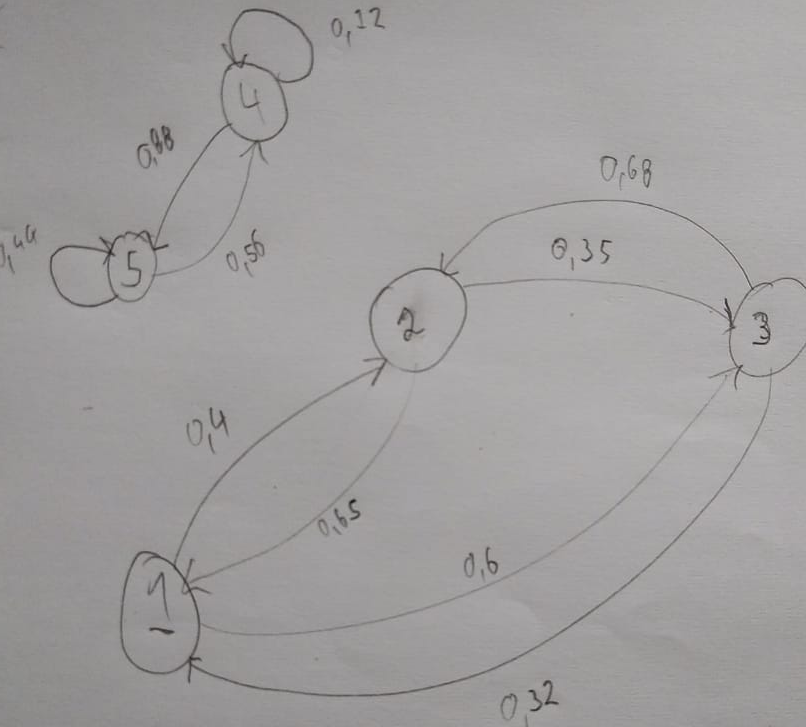 0,12
4
0,88
0,68
5
0,56
0,35
2
3
0,4
0,65
0,6
1
0,32